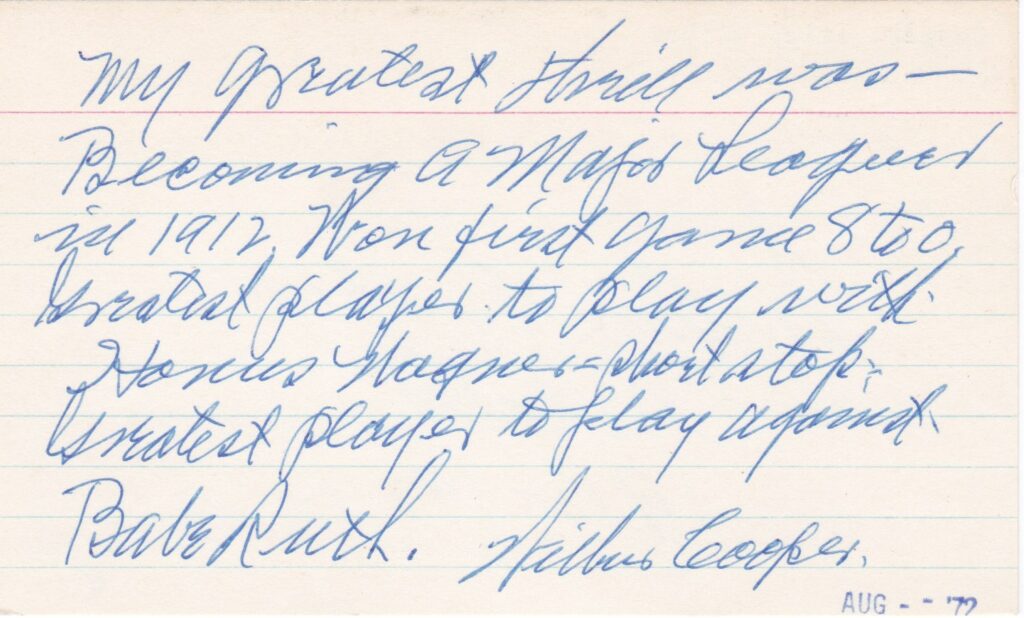 My greatest thrill was—
Becoming a Major Leaguer
in 1912. Won first game 8 to 0.
Greatest player to play with
Honus Wagner - shortstop.
Greatest player to play against.
Babe Ruth. Wilbur Cooper.
AUG - - '72